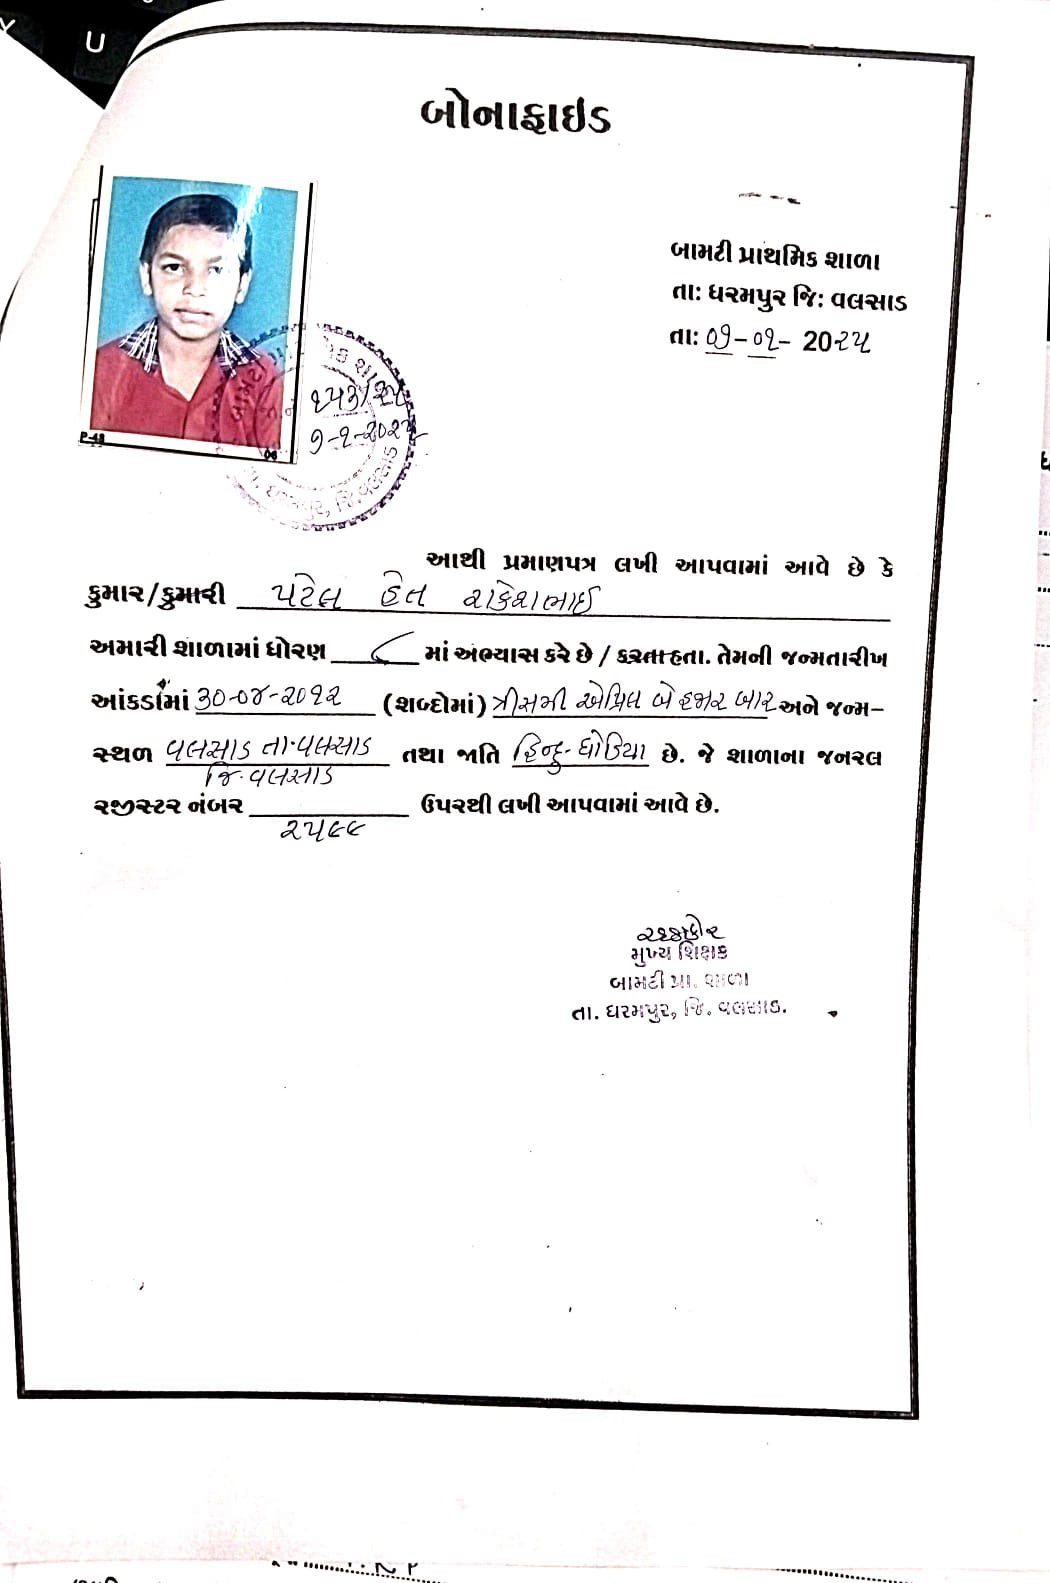 U
બોનાફાઇડ
બામટી પ્રાથમિક શાળા
તા: ધરમપુર જિ: વલસાડ
તા: ૦૧-૦૧- 20૨૫
૧૫૩/૨૫
૧-૧-૨૦૨૫
ધરમપુર, જિ. વલસાડ
આથી પ્રમાણપત્ર લખી આપવામાં આવે છે કે
કુમાર/કુમારી પટેલ હેત રાકેશભાઈ
અમારી શાળામાં ધોરણ ૮ માં અભ્યાસ કરે છે / કરતા હતા. તેમની જન્મતારીખ
આંકડામાં ૩૦-૦૪-૨૦૧૨ (શબ્દોમાં) ત્રીસમી એપ્રિલ બે હજાર બાર અને જન્મ-
સ્થળ વલસાડ તા. વલસાડ તથા જાતિ હિન્દુ-ધોડિયા છે. જે શાળાના જનરલ
જિ. વલસાડ
રજીસ્ટર નંબર ઉપરથી લખી આપવામાં આવે છે.
૨૫૯૯
મુખ્ય શિક્ષક
બામટી પ્રા. શાળા
તા. ધરમપુર, જિ. વલસાડ.